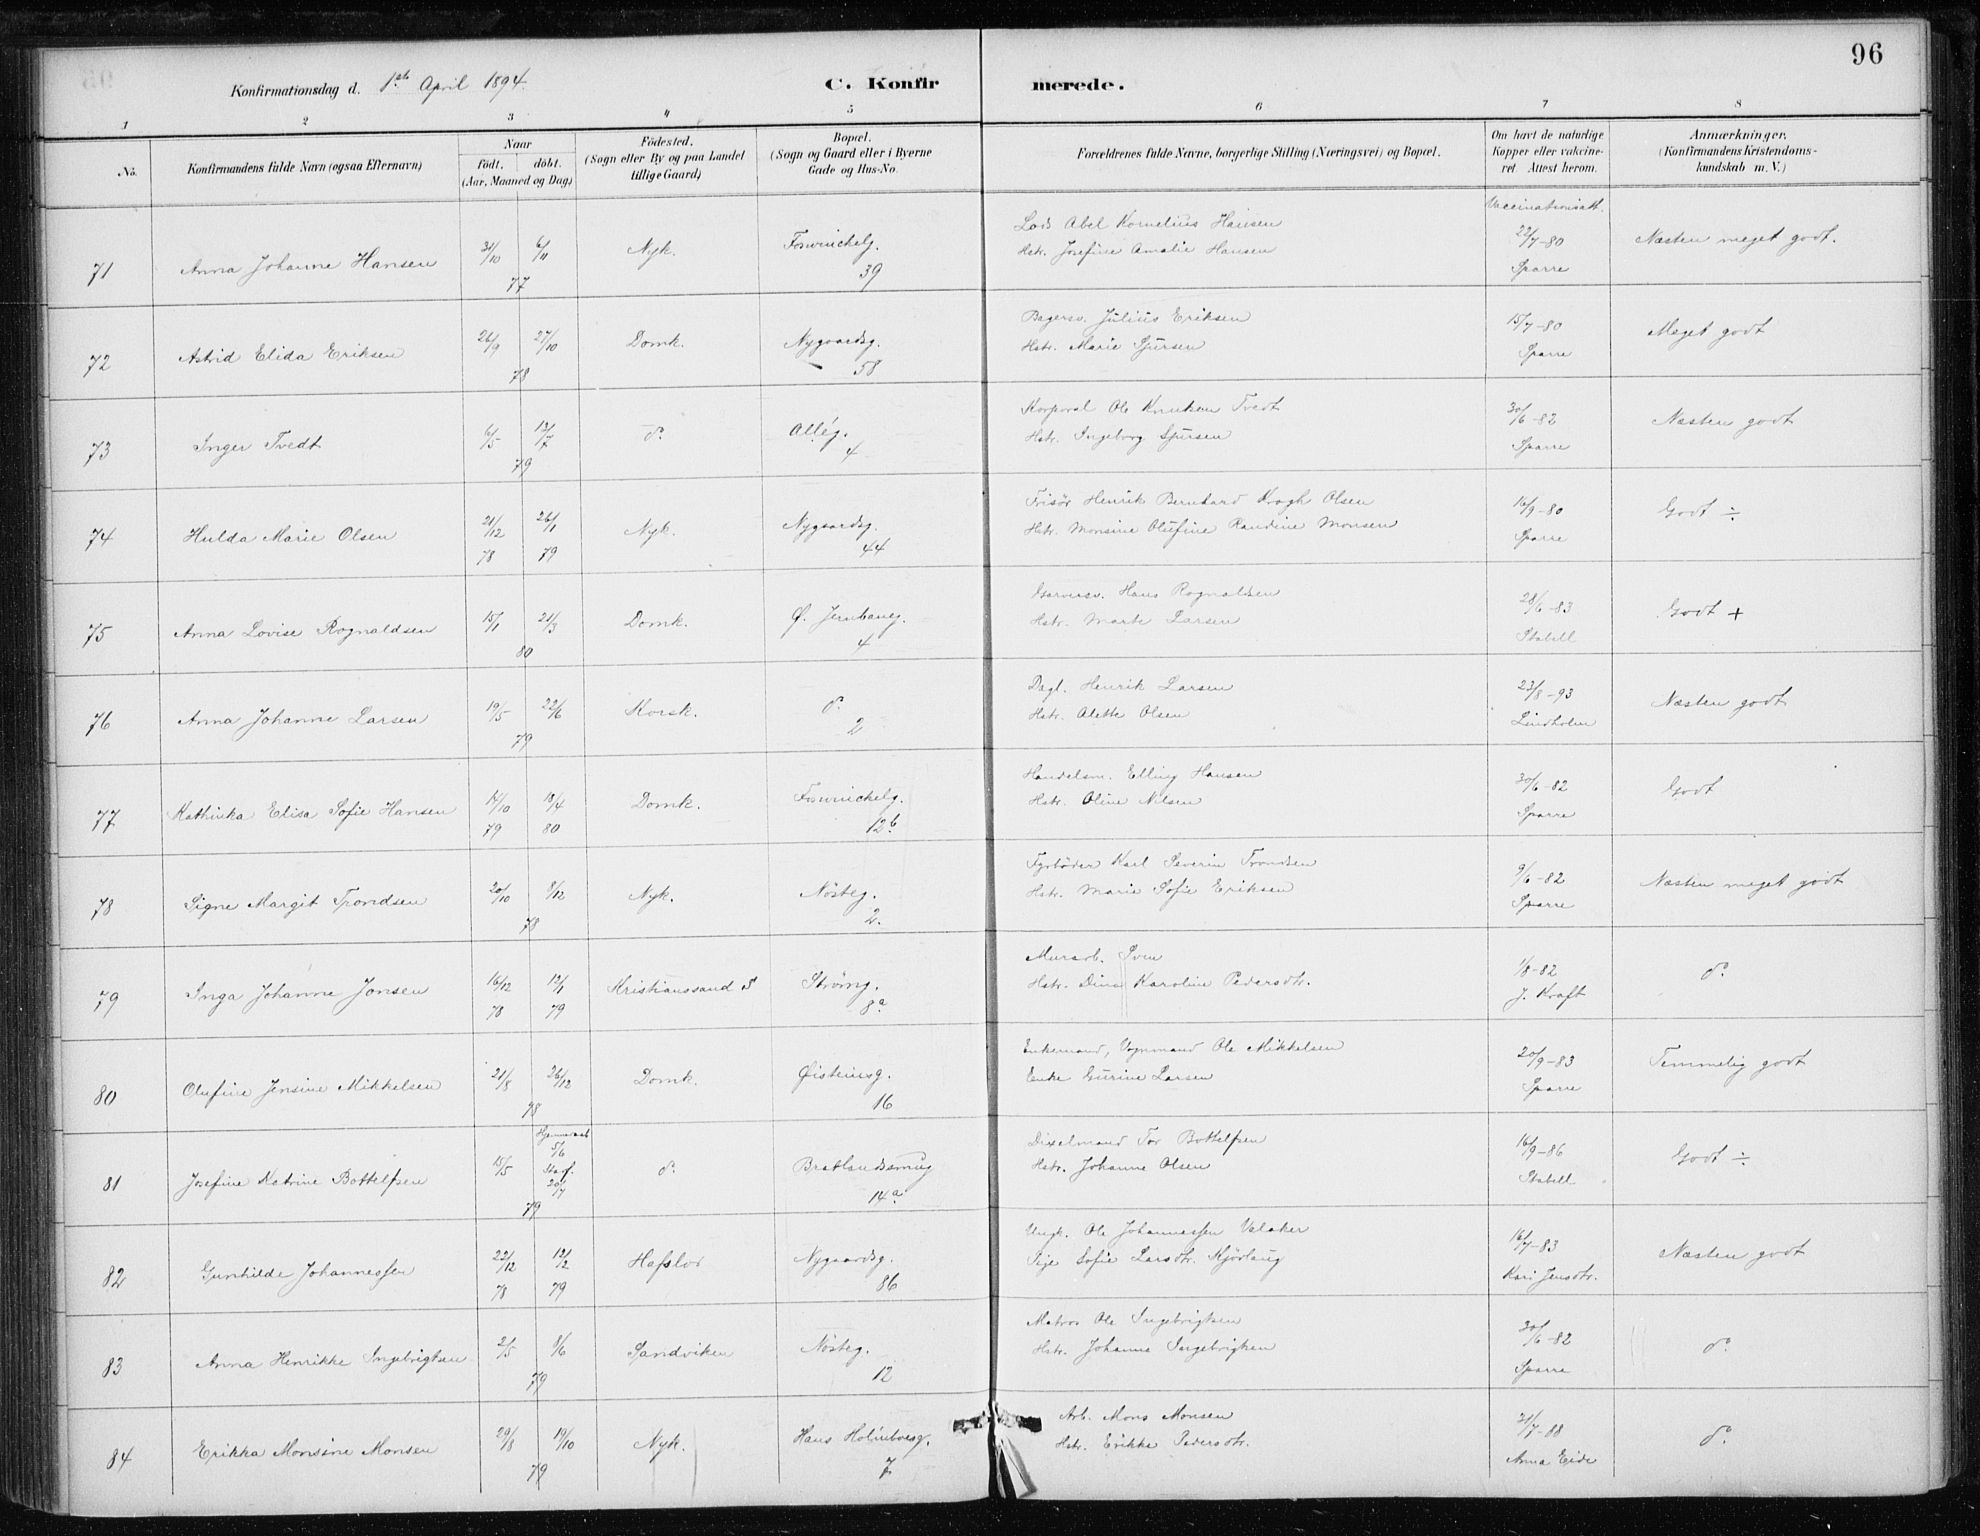 96
Konfirmationsdag d. 1ste April 1894.
C. Konfirmerede.
1 2 3 4 5 6 7 8
No. Konfirmandens fulde Navn (ogsaa Efternavn) Naar födt. döbt. (Aar, Maaned og Dag) Födested. (Sogn eller By og paa Landet tillige Gaard) Bopæl. (Sogn og Gaard eller i Byerne Gade og Hus-No. Forældrenes fulde Navne, borgerlige Stilling (Næringsvei) og Bopæl. Om havt de naturlige Kopper eller vakcineret. Attest herom. Anmærkninger. (Konfirmandens Kristendomskundskab m. V.)
71 Anna Johanne Hansen 31/10 6/11 77 Nyk. Foswinckelg. 39 Lods Abel Kornelius Hansen Hstr. Josefine Amalie Hansen Vaccinationsatt. 22/7-80 Sparre Næsten meget godt.
72 Astrid Elida Eriksen 26/9 27/10 78 Domk. Nygaardsg. 58 Bagersv. Julius Eriksen Hstr. Marie Sjursen 15/7-80 Sparre Meget godt
73 Inger Tvedt 6/5 13/7 79 do Allég. 4 Korporal Ole Knutsen Tvedt Hstr. Ingeborg Sjursen 30/6-82 Sparre Næsten godt
74 Hulda Marie Olsen 21/12 78 26/1 79 Nyk. Nygaardsg. 44 Frisør Henrik Bernhard Krogh Olsen Hstr. Monsine Olufine Randine Monsen 16/9-80 Sparre Godt ÷
75 Anna Lovise Rognaldsen 15/1 21/3 80 Domk. Ø. Jernbaneg. 4 Garversv. Hans Rognaldsen Hstr. Marte Larsen 28/6-83 Stabell Godt +
76 Anna Johanne Larsen 19/5 22/6 79 Korsk. do 2 Dagl. Henrik Larsen Hstr. Alette Olsen 23/8-93 Lindholm Næsten godt
77 Kathinka Elisa Sofie Hansen 14/10 79 18/4 80 Domk. Foswinckelg. 12b Handelsm. Elling Hansen Hstr. Oline Nilsen 30/6-82 Sparre Godt
78 Signe Margit Trondsen 20/10 8/12 78 Nyk. Nösteg. 2. Fyrböder Karl Severin Trondsen Hstr. Marie Sofie Eriksen 9/6-82 Sparre Næsten meget godt
79 Inga Johanne Jonsen 16/12 78 12/1 79 Kristianssand S Strömg. 8a Murarb. Sven Hstr. Dina Karoline Pedersdtr. 1/8-82 J. Kraft do
80 Olufine Jensine Mikkelsen 21/8 26/12 78 Domk. Øisteinsg. 16 Enkemand, Vognmand Ole Mikkelsen Enke Gurine Larsen 20/9-83 Sparre Temmelig godt
81 Josefine Katrine Bottelfsen 15/5 Hjemmedøbt 5/6 Stadf. 20/7 79 do Bratlandssmug 14a Dixelmand Tor Bottelfsen Hstr. Johanne Olsen 16/9-86 Stabell Godt ÷
82 Gunhilde Johannessen 22/12 78 12/2 79 Hafslo Nygaardsg. 86 Ungk. Ole Johannessen Valaker Pige Sofie Larsdtr. Kjörlaug 16/7-83 Kari Jensdtr. Næsten godt
83 Anna Henrikke Ingebrigtsen 2/5 8/6 79 Sandviken Nösteg. 12 Matros Ole Ingebrigtsen Hstr. Johanna Ingebrigtsen 30/6-82 Sparre do
84 Erikka Monsine Monsen 29/8 19/10 79 Nyk. Hans Holmboesg. 7 Arb. Mons Monsen Hstr. Erikke Pedersdtr. 31/7-88 Anna Eide do